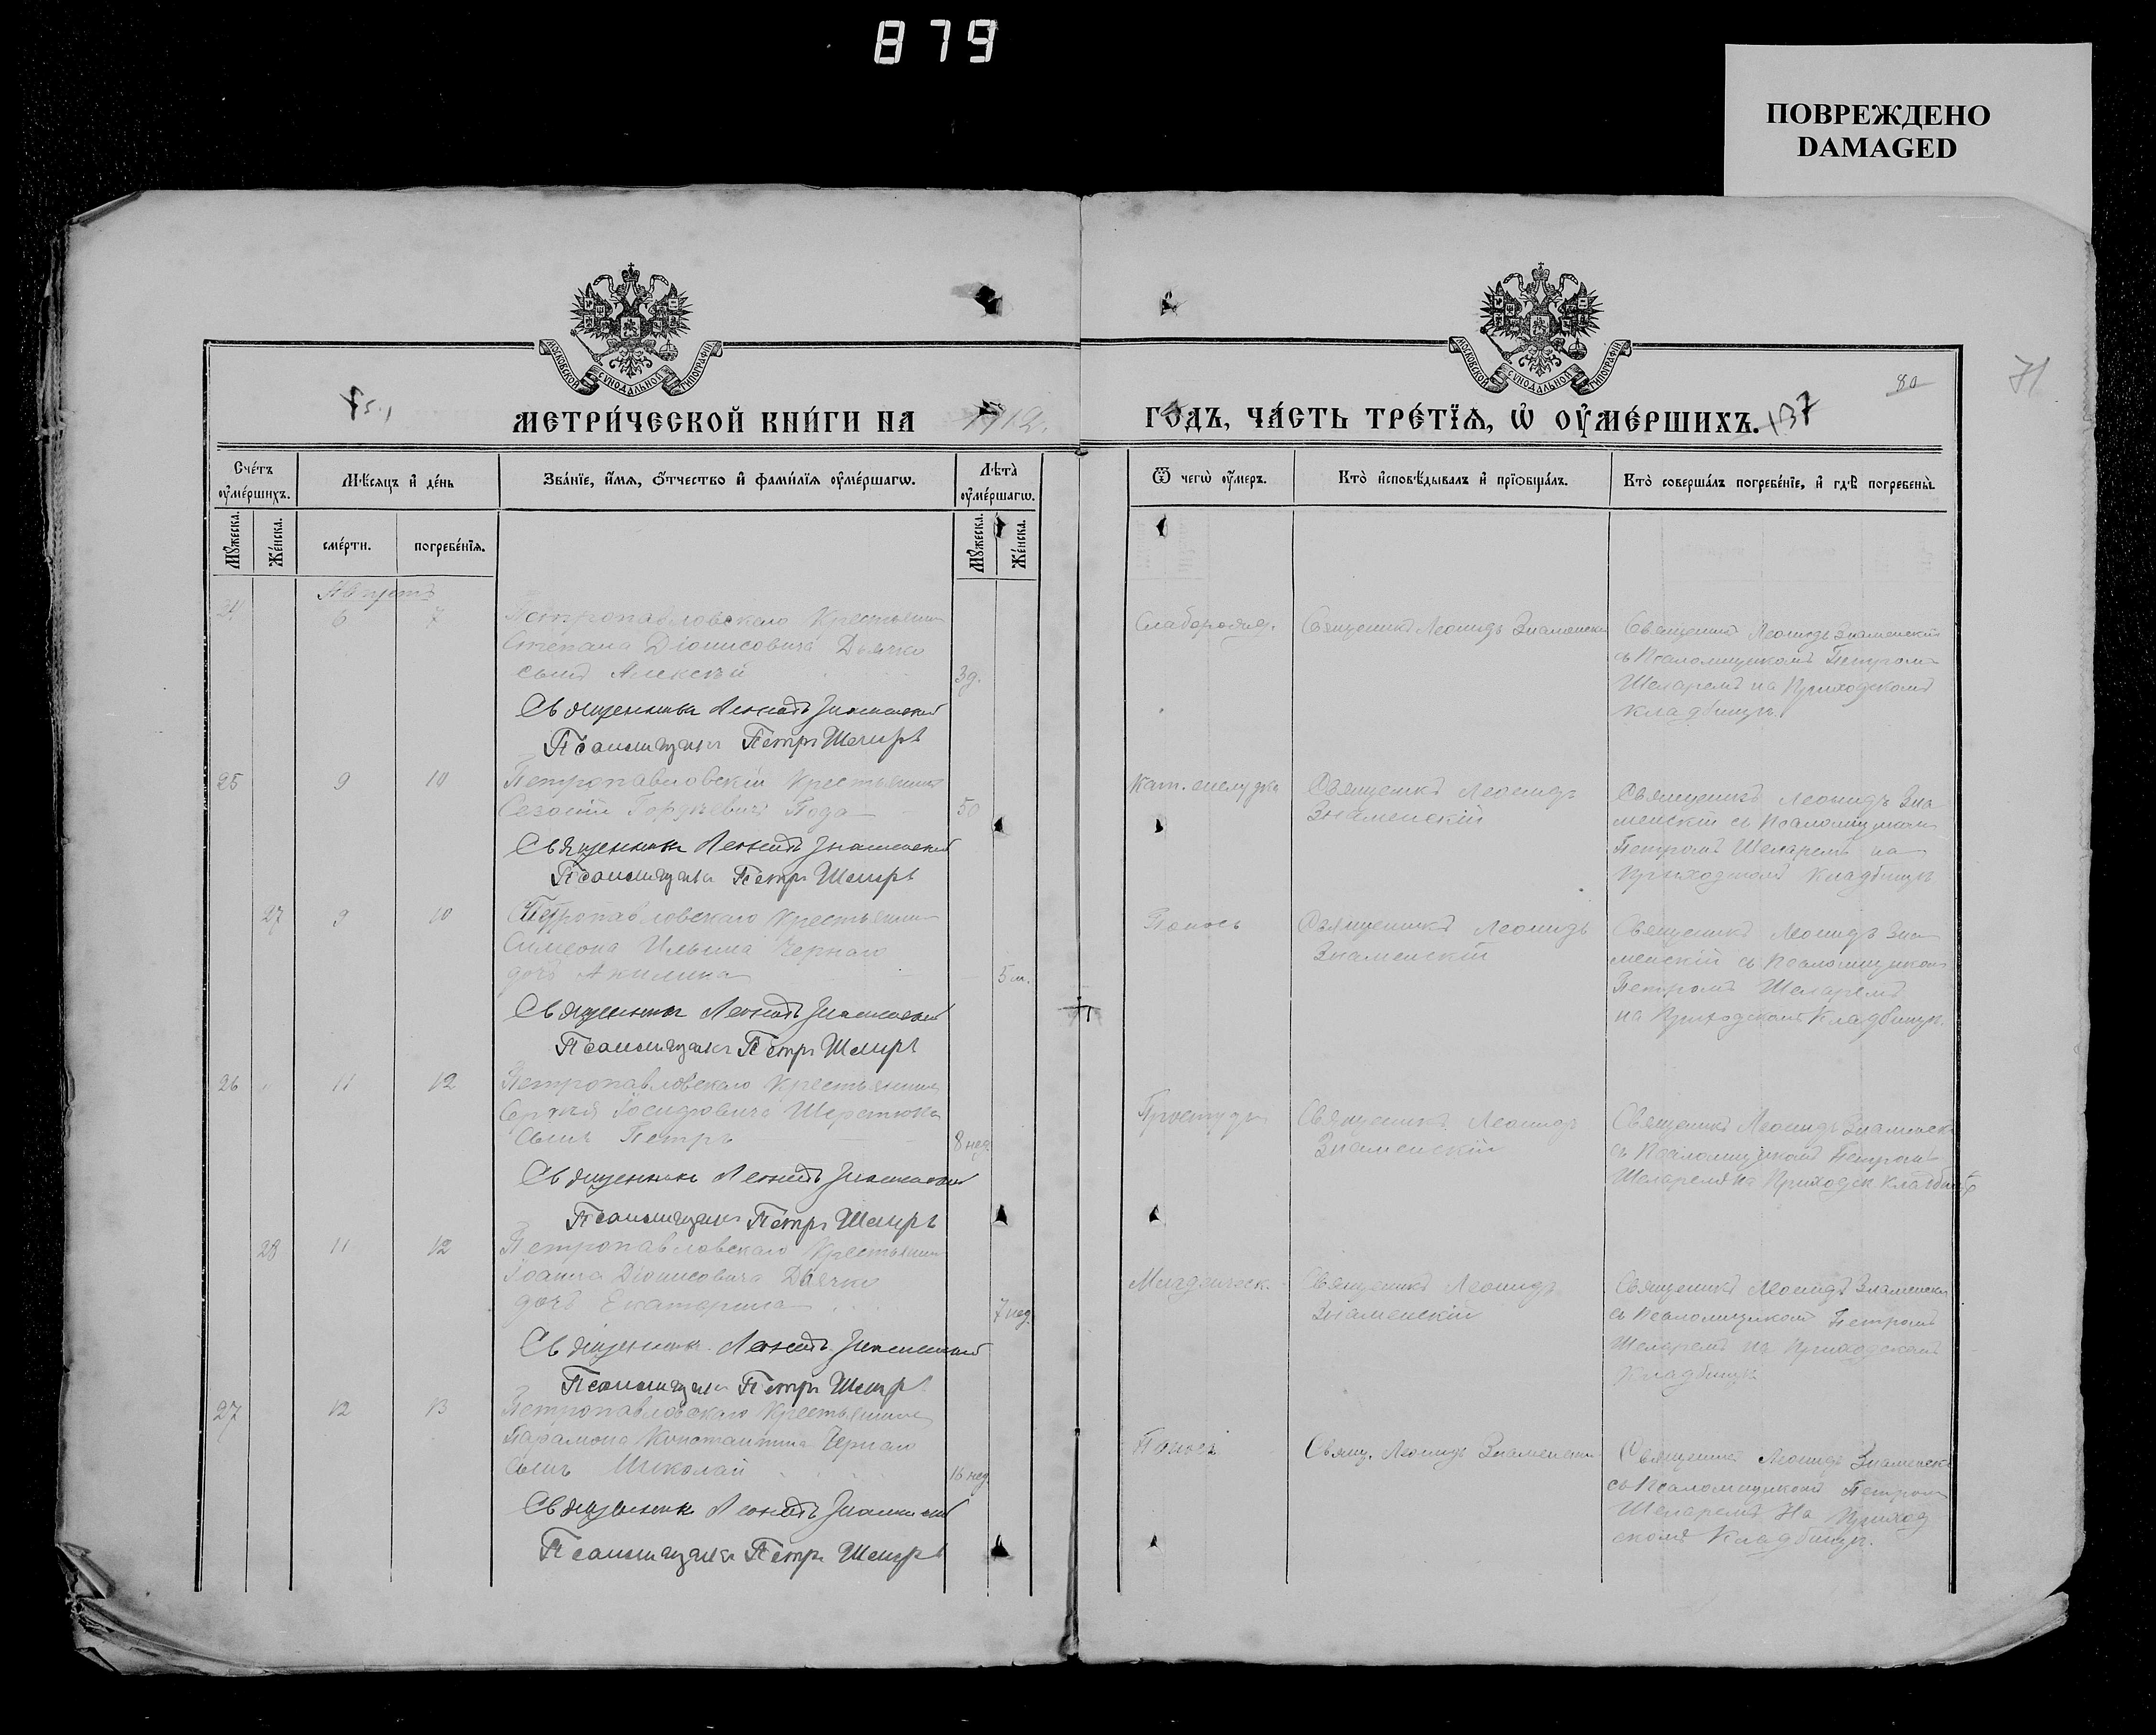 879
ПОВРЕЖДЕНО
DAMAGED
МОСКОВСКОЙ СѴНОДАЛЬНОЙ ТИПОГРАФІИ
МОСКОВСКОЙ СѴНОДАЛЬНОЙ ТИПОГРАФІИ
80
71
МЕТРИ́ЧЕСКОЙ КНИ́ГИ НА 1912
ГО́ДЪ, ЧА́СТЬ ТРЕ́ТЇѦ, Ѡ҆ ОУ҆МЕ́РШИХЪ. 137
Сче́тъ оу҆ме́ршихъ.
Мѣ́сяцъ и҆ де́нь
Зва́нїе, и҆́мѧ, ѻ҆́тчество и҆ фами́лїѧ оу҆ме́ршагѡ.
Лѣ̑та̀ оу҆ме́ршагѡ.
Ѿ чегѡ̀ оу҆́меръ.
Кто̀ и҆сповѣ́дывалъ и҆ прїѻбща́лъ.
Кто̀ соверша́лъ погребе́нїе, и҆ гдѣ̀ погребены̀.
Мꙋ́жеска.
Же́нска.
сме́рти.
погребе́нїѧ.
Мꙋ́жеска.
Же́нска.
Августъ
24 6 7 Петропавловскаго Крестьянина
Степана Діонисовича Дьячко
сынъ Алексѣй 3д.
Священникъ Леонидъ Знаменскій
Псаломщикъ Петръ Шеларь
Священникъ Леонидъ Знаменскій
Священникъ Леонидъ Знаменскій
съ Псаломщикомъ Петромъ
Шеларемъ на Приходскомъ
кладбищѣ.
25 9 10 Петропавловскій Крестьянинъ
Гордѣевичъ 50
Священникъ Леонидъ Знаменскій
Псаломщикъ Петръ Шеларь
Кат. желудка
Священикъ Леонидъ
Знаменскій
Священикъ Леонидъ Зна
менскій съ Псаломщикомъ
Петромъ Шеларемъ на
Приходскомъ Кладбищѣ
27 9 10 Петропавловскаго Крестьянина
Симеона Ильина Чернаго
дочь Акилина 5 м.
Священникъ Леонидъ Знаменскій
Псаломщикъ Петръ Шеларь
Поносъ
Священикъ Леонидъ
Знаменскій
Священикъ Леонидъ Зна
менскій съ Псаломщикомъ
Петромъ Шеларемъ
на Приходскомъ Кладбищѣ.
26 11 12 Петропавловскаго Крестьянина
Сергѣя Іосифовича Шерстюка
сынъ Петръ 8 нед.
Священникъ Леонидъ Знаменскій
Псаломщикъ Петръ Шеларь
Простуды
Священикъ Леонидъ
Знаменскій
Священикъ Леонидъ Знаменск
съ Псаломщикомъ Петромъ
Шеларемъ на Приходск кладбищѣ
28 11 12 Петропавловскаго Крестьянина
Іоанна Діонисовича Дьячко
дочь Екатерина 7 нед.
Священникъ Леонидъ Знаменскій
Псаломщикъ Петръ Шеларь
Священикъ Леонидъ
Знаменскій
Священикъ Леонидъ Знаменски
съ Псаломщикомъ Петромъ
Шеларемъ на Приходскомъ
Кладбищѣ
27 12 13 Петропавловскаго Крестьянина
Парамона Константина Чернаго
сынъ Николай 16 нед
Священникъ Леонидъ Знаменскій
Псаломщикъ Петръ Шеларь
Поносъ
Свящ. Леонидъ Знаменски
Священикъ Леонидъ Знаменск
съ Псаломщикомъ Петромъ
Шеларемъ На Приход
скомъ Кладбищѣ.